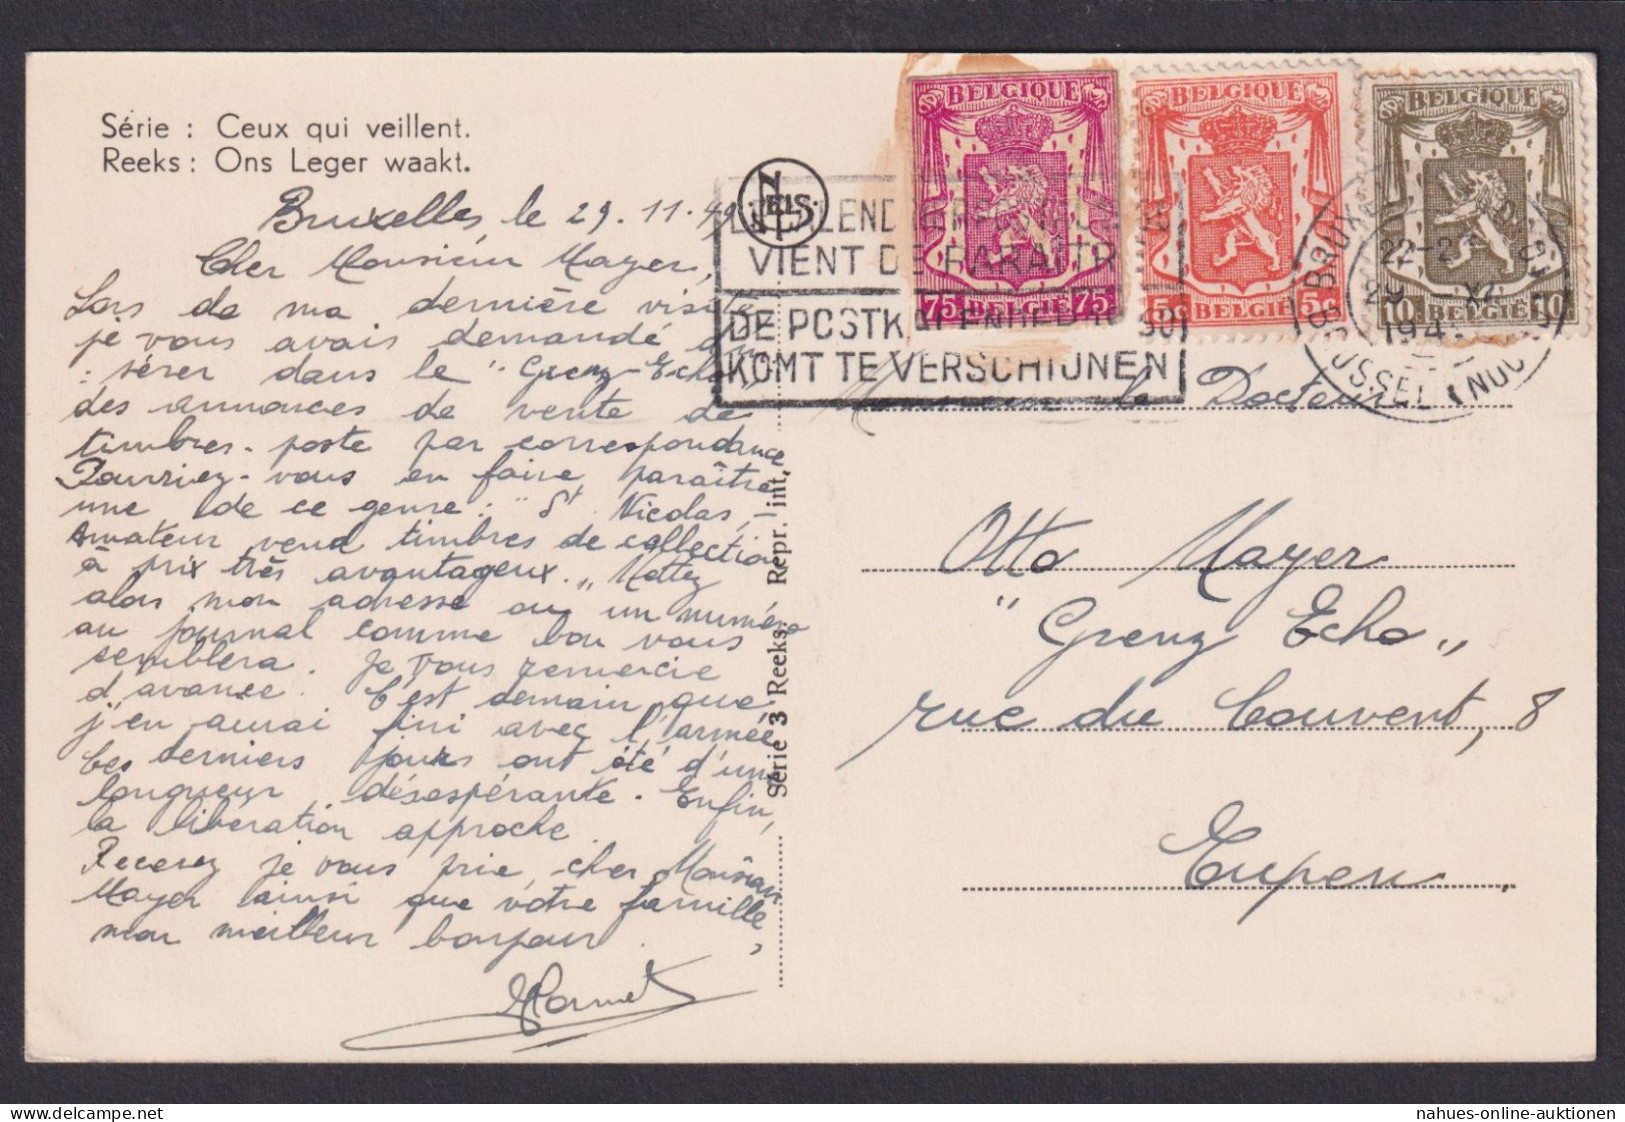 Série : Ceux qui veillent.
Reeks : Ons Leger waakt.
Bruxelles, le 29.11.49
Cher Monsieur Mayer,
Lors de ma dernière visite
je vous avais demandé d'in
- sérer dans le "Grenz-Echo"
des annonces de vente de
timbres-poste par correspondance
Pourriez-vous en faire paraître
une de ce genre : "St Nicolas, -
Amateur vend timbres de collection
à prix très avantageux." Mettez
alors mon adresse ou un numéro
au journal comme bon vous
semblera. Je vous remercie
d'avance. C'est demain que
j'en aurai fini avec l'armée
Ces derniers jours ont été d'une
longueur désespérante. Enfin,
la libération approche.
Recevez je vous prie, cher Monsieur
Mayer ainsi que votre famille,
mon meilleur bonjour.
Série 3 Reeks. Repr. int.
NELS
BELGIQUE
75 BELGIË 75
BELGIQUE
5c BELGIË 5c
BELGIQUE
10 BELGIË 10
LE CALENDRIER POSTAL
VIENT DE PARAITR
DE POSTKALENDER 1950
KOMT TE VERSCHIJNEN
BRUX
22-2
29 XI
194
BRUSSEL (NOO
Monsieur le Docteur
Otto Mayer
"Grenz Echo"
rue du Couvent, 8
Eupen.
nahues-online-auktionen